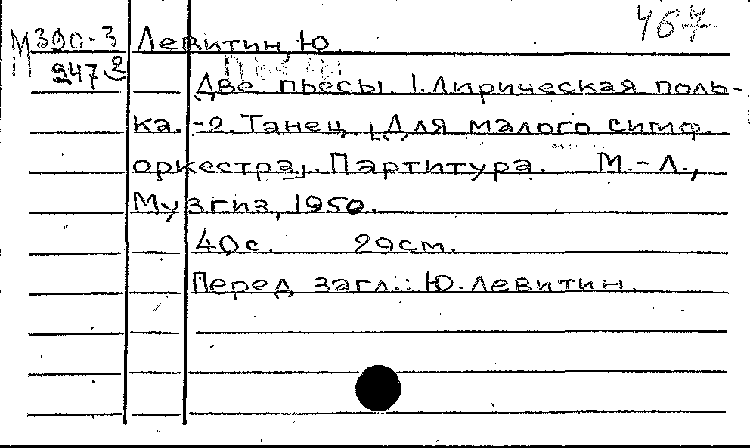 467
М 390-3 Левитин, Ю.
947
Две пьесы. 1. Лирическая поль-
ка. -2. Танец. Для малого симф.
оркестра. Партитура. М.-Л.,
Музгиз, 1950.
40с. 29см.
Перед загл.: Ю. Левитин.